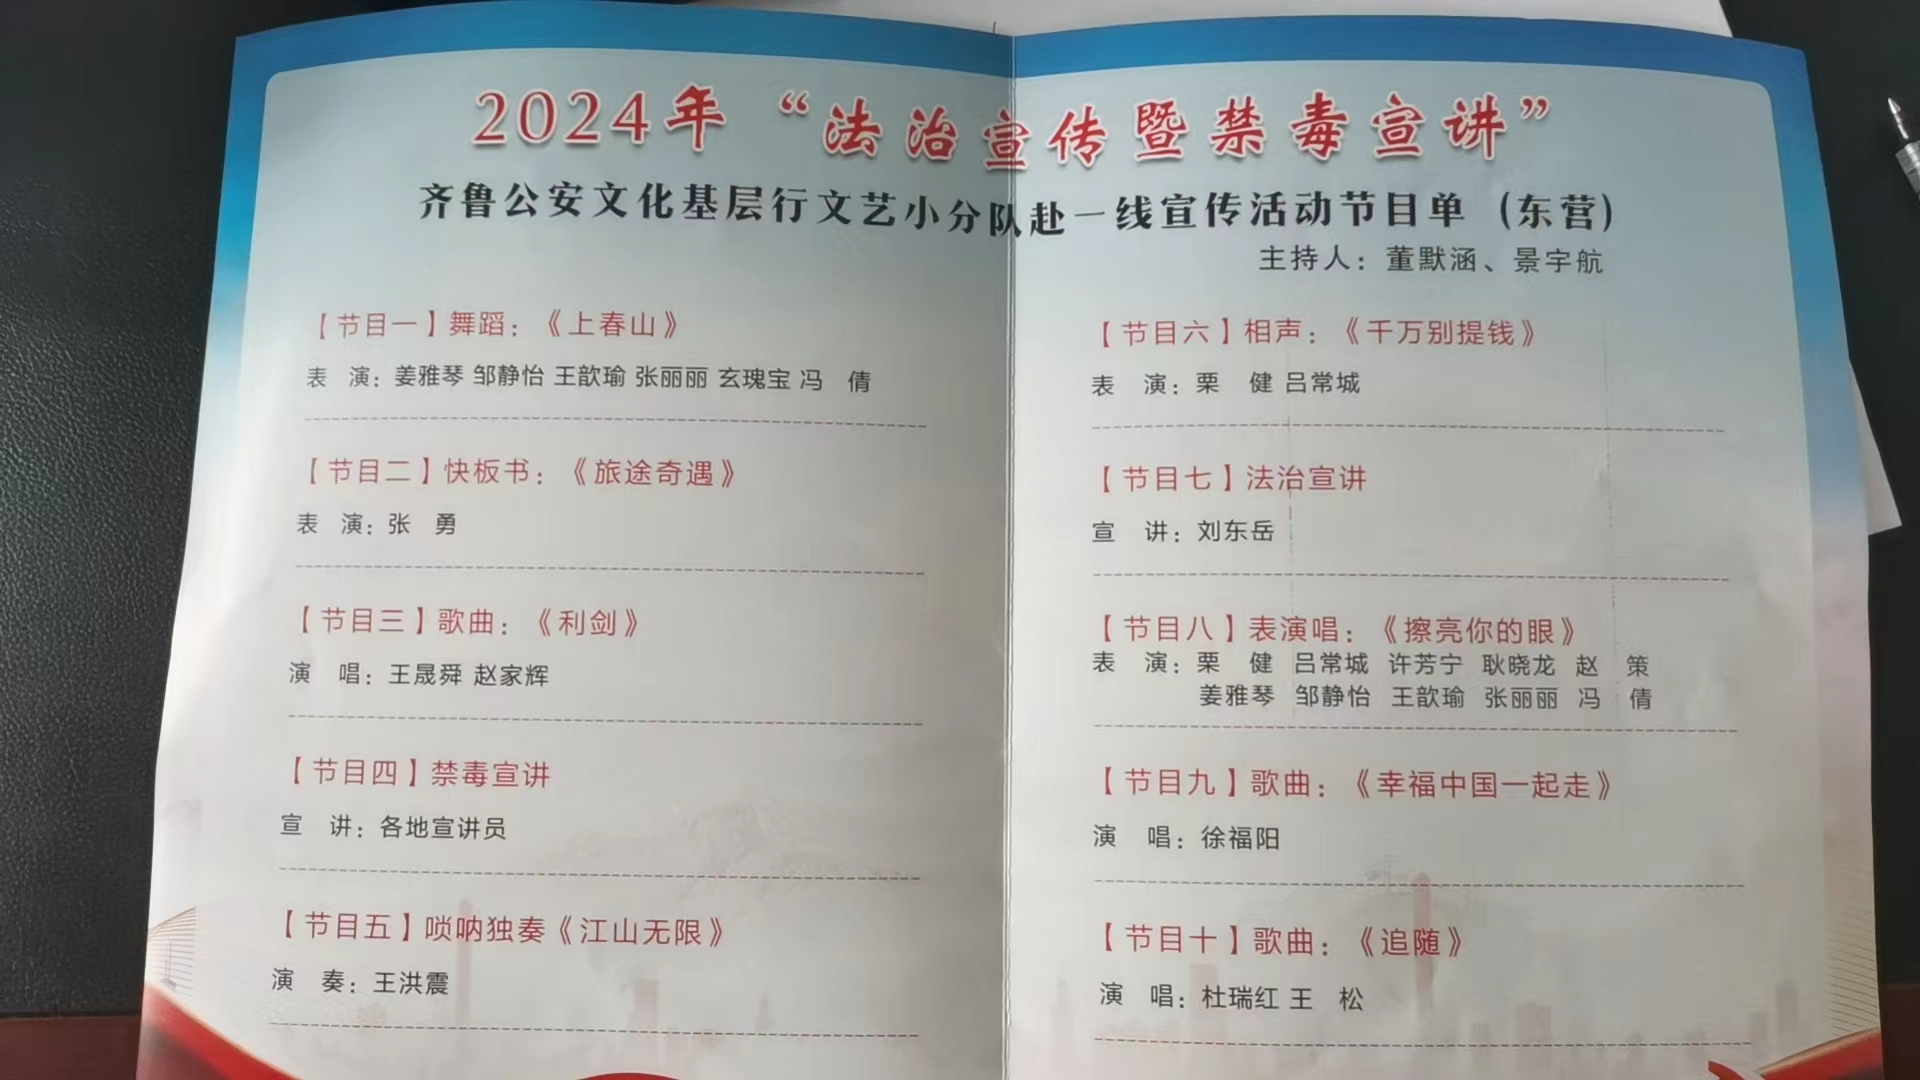 2024年“法治宣传暨禁毒宣讲”
齐鲁公安文化基层行文艺小分队赴一线宣传活动节目单（东营）
主持人：董默涵、景宇航
【节目一】舞蹈：《上春山》
表　演：姜雅琴 邹静怡 王歆瑜 张丽丽 玄瑰宝 冯　倩
【节目二】快板书：《旅途奇遇》
表　演：张　勇
【节目三】歌曲：《利剑》
演　唱：王晟舜 赵家辉
【节目四】禁毒宣讲
宣　讲：各地宣讲员
【节目五】唢呐独奏《江山无限》
演　奏：王洪震
【节目六】相声：《千万别提钱》
表　演：栗　健 吕常城
【节目七】法治宣讲
宣　讲：刘东岳
【节目八】表演唱：《擦亮你的眼》
表　演：栗　健 吕常城 许芳宁 耿晓龙 赵　策
姜雅琴 邹静怡 王歆瑜 张丽丽 冯　倩
【节目九】歌曲：《幸福中国一起走》
演　唱：徐福阳
【节目十】歌曲：《追随》
演　唱：杜瑞红 王　松